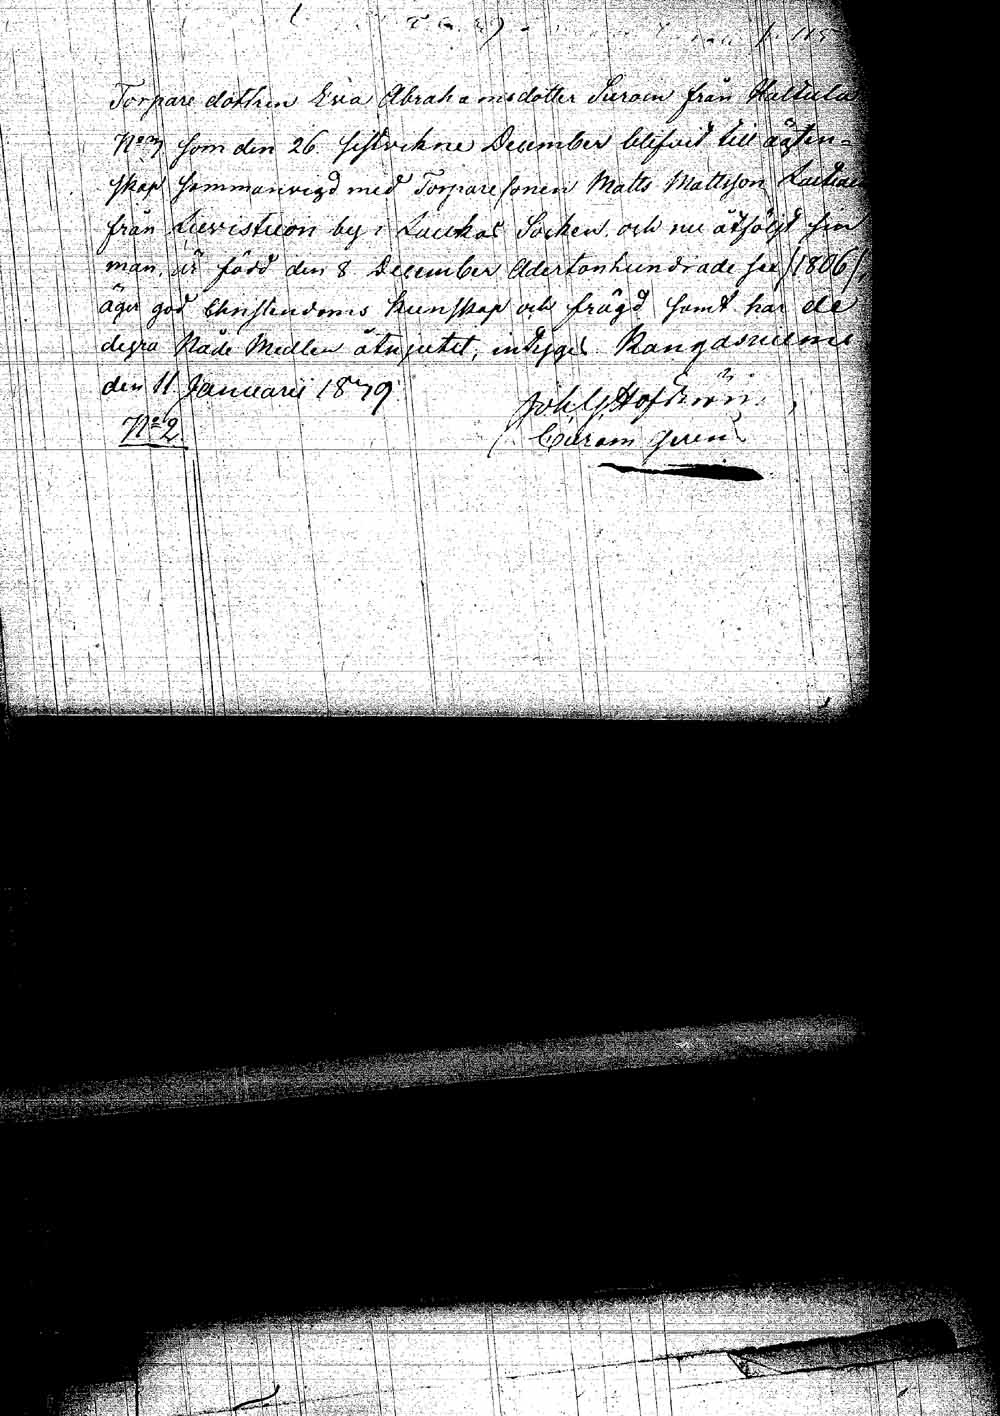 p. 115
Torpare dottren Eva Abrahamsdotter Suroin från Haltula
No 7 som den 26 sistvikne December blifvit till ägten=
skap sammanvigd med Torpare sonen Matts Mattsson
från by i Laukas Socken, och nu åtföljt sin
man, är född den 8 December Adertonhundrade sex /1806/,
äger god Christendoms kunskap och frägd samt har de
degra Nåde Medlen åtnjutit, intygas Kangasniemi
den 11 Januarii 1839
Joh. G.
Curam gerens
No 2.